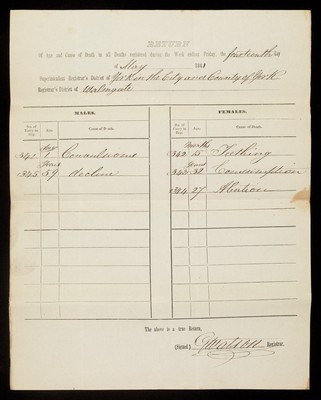 RETURN
Of Age and Cause of Death in all Deaths registered during the Week ending Friday, the fourteenth day
of May 1841
Superintendent Registrar's District of York in the City and County of York
Registrar's District of Walmgate
MALES. FEMALES.
No. of Entry in Regr. Age. Cause of Death. No. of Entry in Regr. Age. Cause of Death.
day Months
341 1 Convulsions 342 15 Teething
Years Years
345 59 Decline 343 32 Consumption
344 27
The above is a true Return,
(Signed) Registrar.